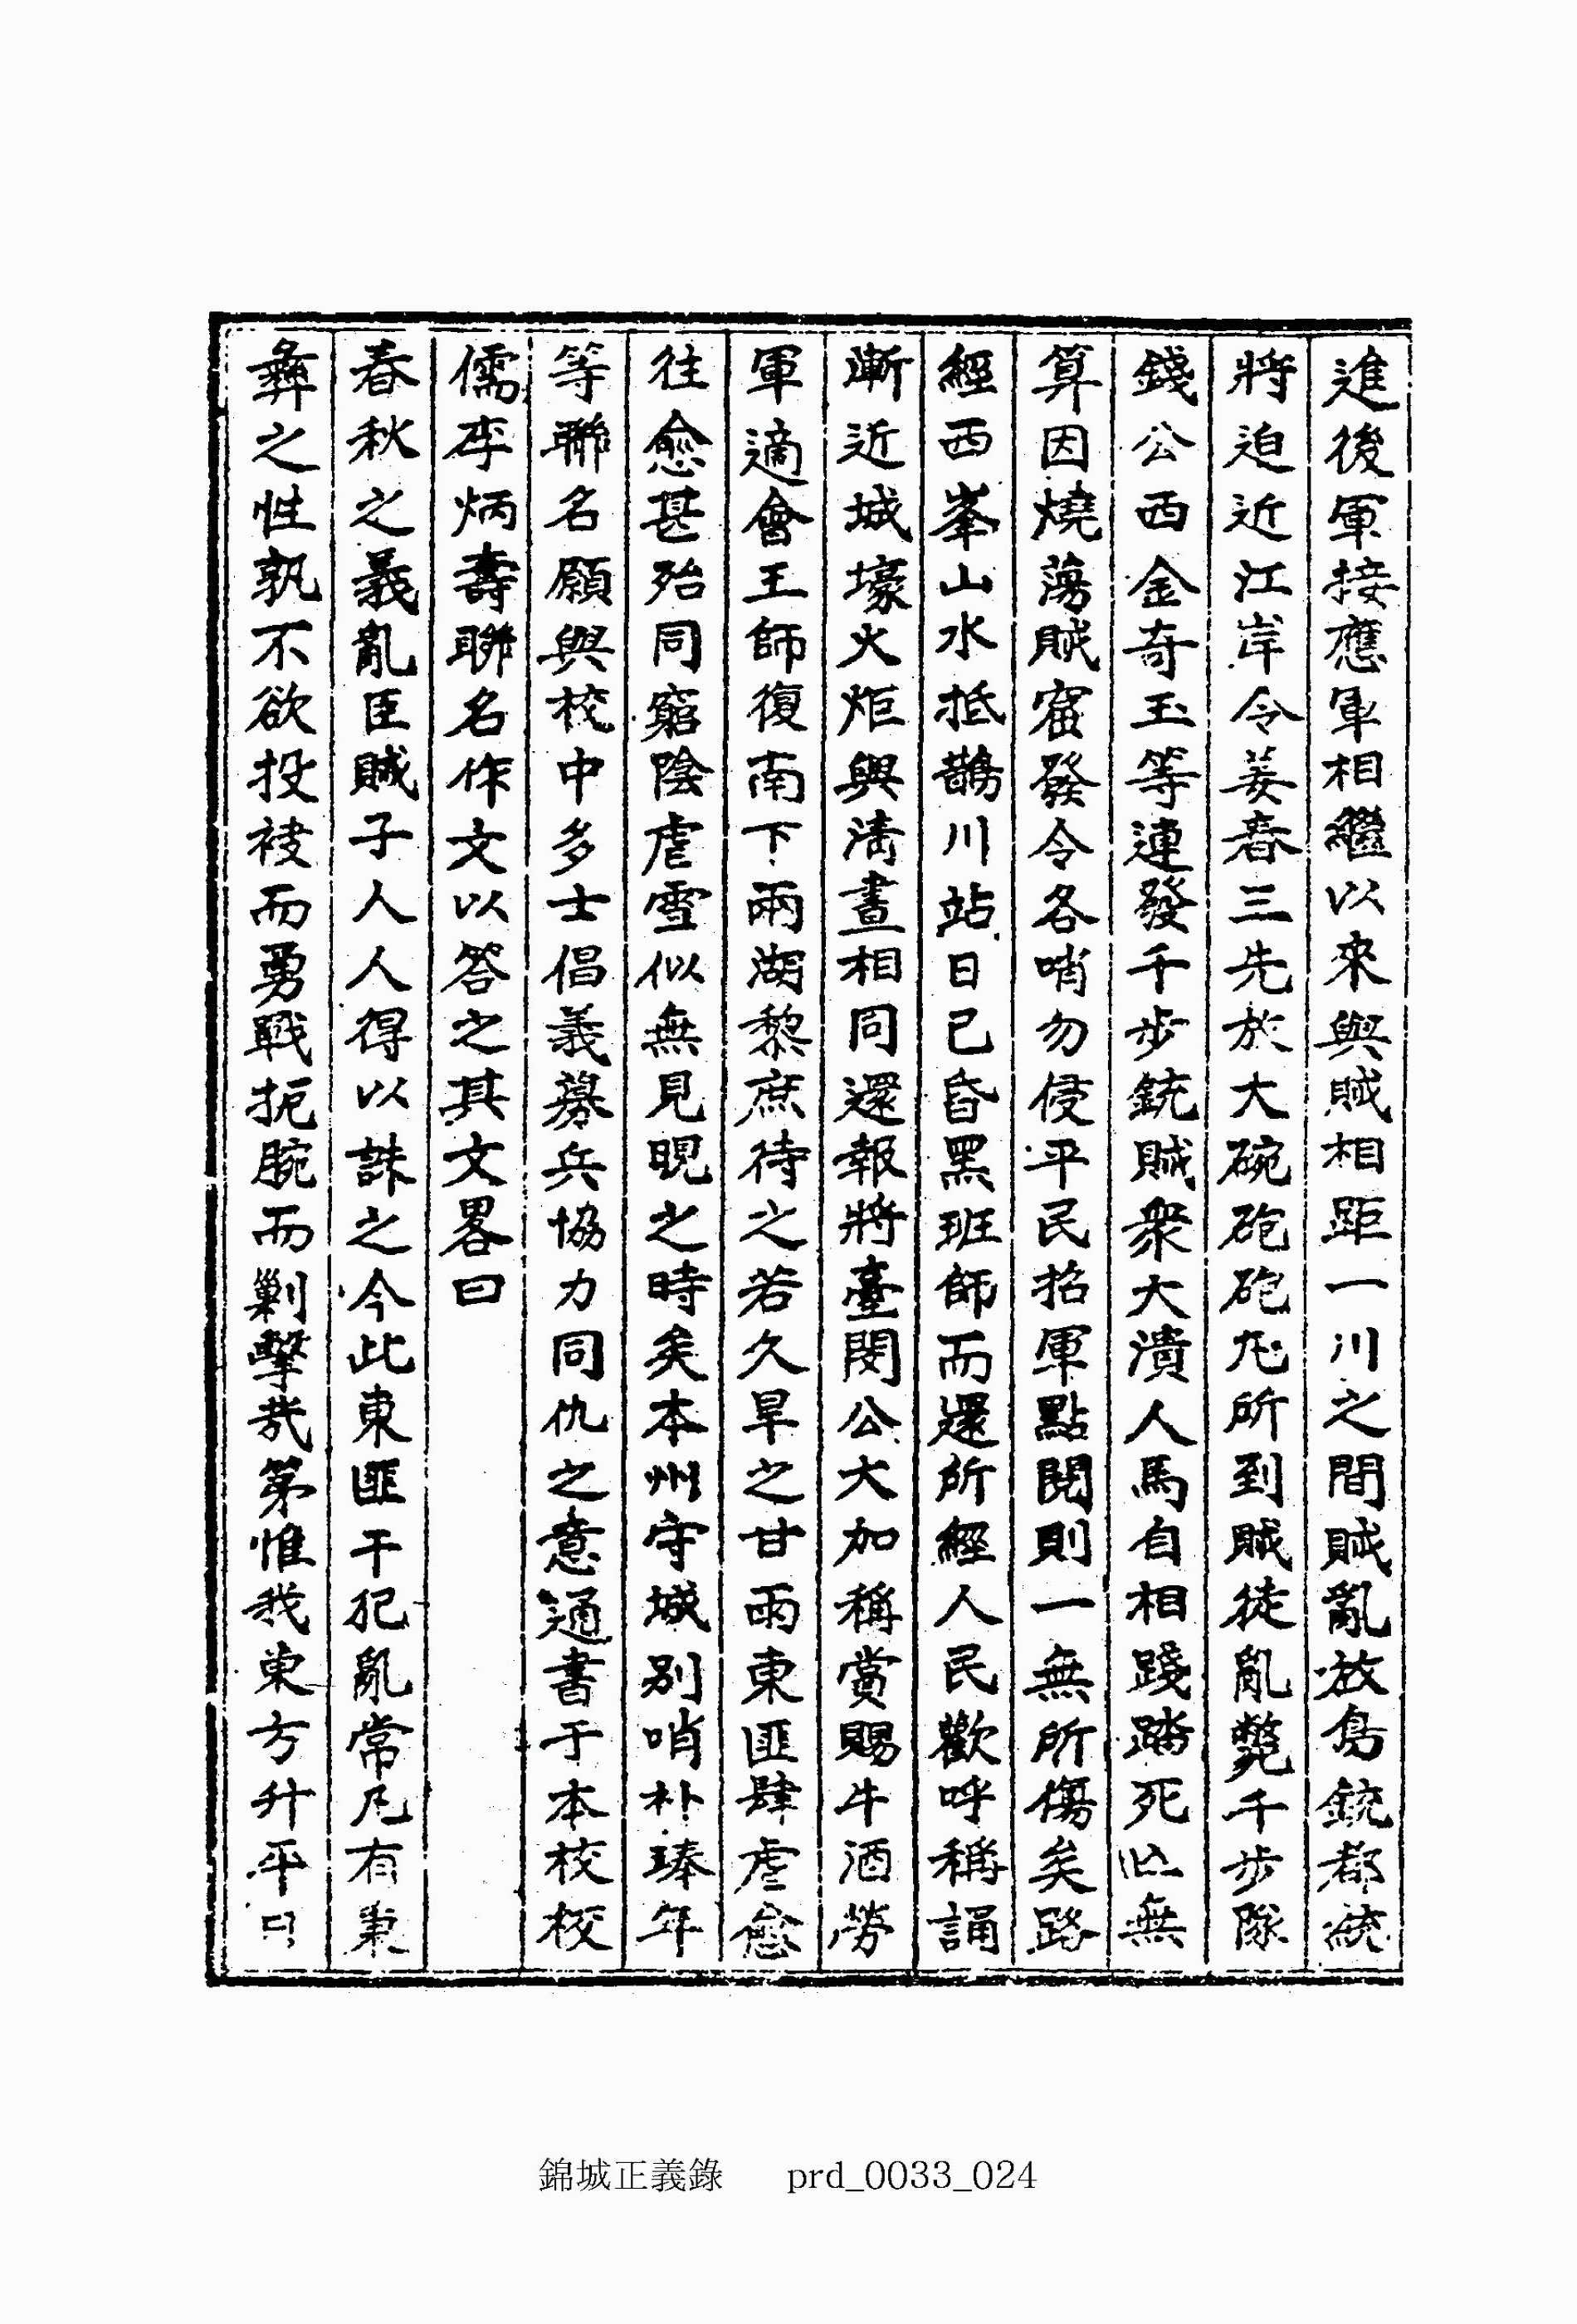 進後軍接應軍相繼以來與賊相距一川之間賊亂放鳥銃都統
將迫近江岸令姜春三先於大碗砲砲丸所到賊徒亂斃千步隊
錢公西金奇玉等連發千步銃賊衆大潰人馬自相踐踏死亡無
算因燒蕩賊窟發令各哨勿侵平民招軍點閱則一無所傷矣路
經西峯山水抵鵲川站日已昏黑班師而還所經人民歡呼稱誦
漸近城壕火炬與淸晝相同還報將臺閔公大加稱賞賜牛酒勞
軍適會王師復南下兩湖黎庶待之若久旱之甘雨東匪肆虐愈
往愈甚殆同窮陰虐雪似無見晛之時矣本州守城別哨朴瑧年
等聯名願與校中多士倡義募兵協力同仇之意通書于本校校
儒李炳壽聯名作文以答之其文畧曰
春秋之義亂臣賊子人人得以誅之今此東匪干犯亂常凡有秉
彝之性孰不欲投袂而勇戰扼腕而剿擊哉第惟我東方升平日